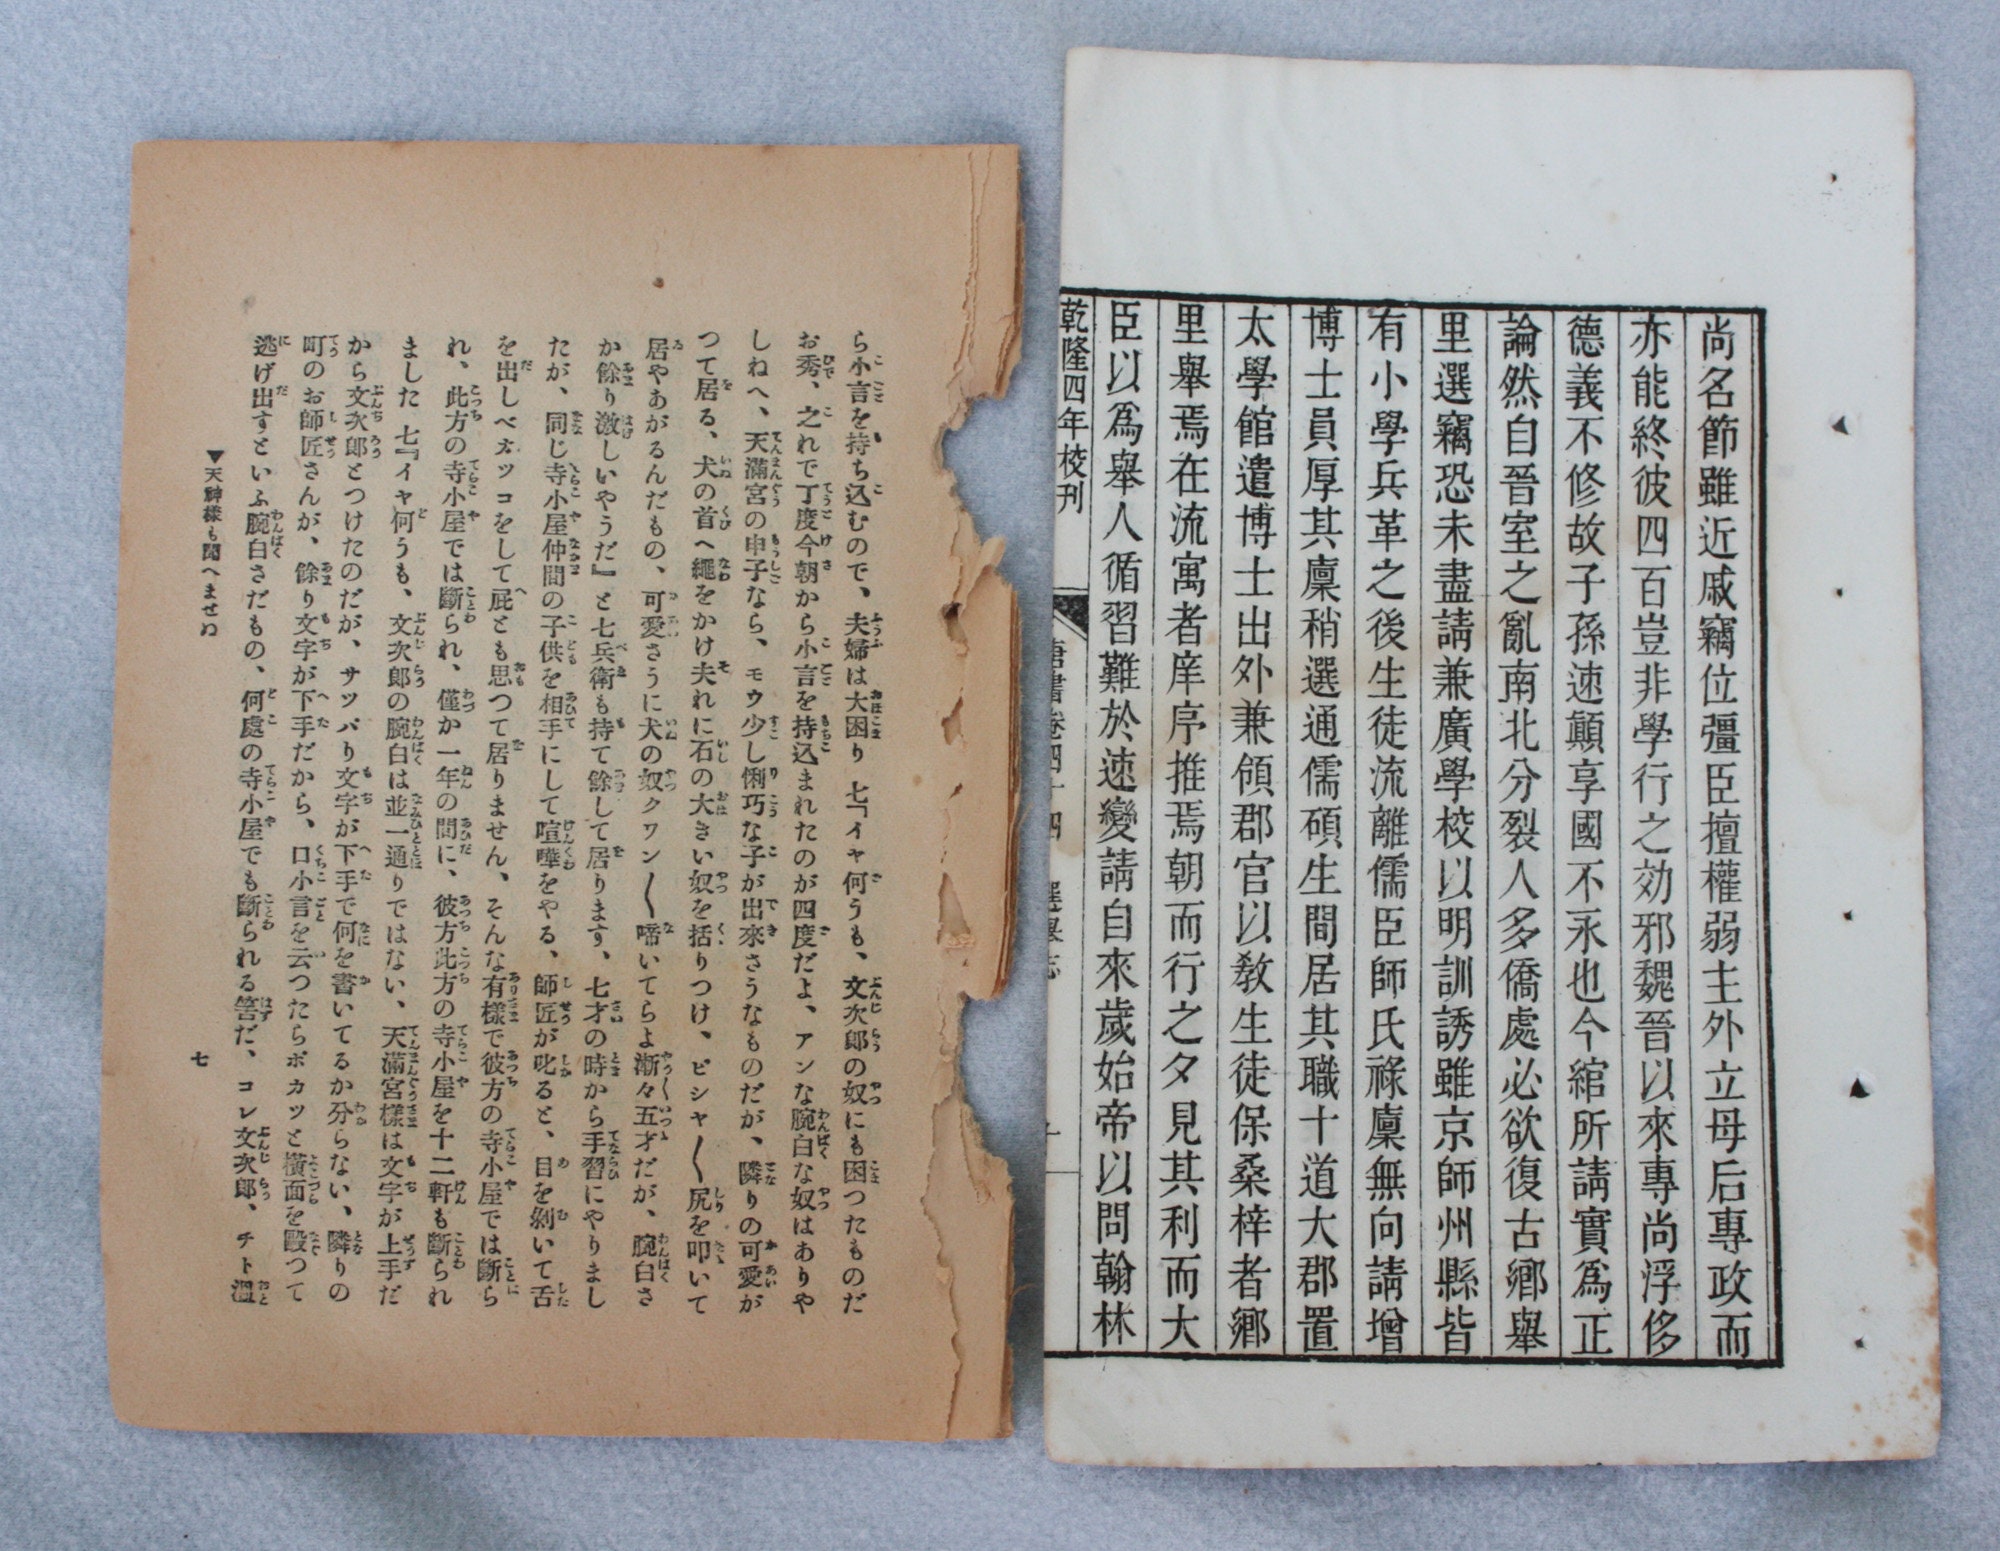 尚名節雖近戚竊位彊臣擅權弱主外立母后專政而
亦能終彼四百豈非學行之効邪魏晉以來專尚浮侈
德義不修故子孫速顛享國不永也今綰所請實爲正
論然自晉室之亂南北分裂人多僑處必欲復古鄉舉
里選竊恐未盡請兼廣學校以明訓誘雖京師州縣皆
有小學兵革之後生徒流離儒臣師氏祿廩無向請增
博士員厚其廩稍選通儒碩生間居其職十道大郡置
太學館遣博士出外兼領郡官以教生徒保桑梓者鄉
里舉焉在流寓者庠序推焉朝而行之夕見其利而大
臣以爲舉人循習難於速變請自來歲始帝以問翰林
乾隆四年校刊
唐書卷四十四 選舉志
ら小言を持ち込むので、夫婦は大困り 七『イヤ何うも、文次郎の奴にも困つたものだ
お秀、之れで丁度今朝から小言を持込まれたのが四度だよ、アンな腕白な奴はありや
しねへ、天滿宮の申子なら、モウ少し悧巧な子が出來さうなものだが、隣りの可愛が
つて居る、犬の首へ繩をかけ夫れに石の大きい奴を括りつけ、ピシャ〱尻を叩いて
居やあがるんだもの、可愛さうに犬の奴クワン〱啼いてらよ漸々五才だが、腕白さ
か餘り激しいやうだ』と七兵衛も持て餘して居ります、七才の時から手習にやりまし
たが、同じ寺小屋仲間の子供を相手にして喧嘩をやる、師匠が叱ると、目を剝いて舌
を出しベカッコをして屁とも思つて居りません、そんな有樣で彼方の寺小屋では斷ら
れ、此方の寺小屋では斷られ、僅か一年の間に、彼方此方の寺小屋を十二軒も斷られ
ました 七『イヤ何うも、文次郎の腕白は並一通りではない、天滿宮樣は文字が上手だ
から文次郎とつけたのだが、サツパリ文字が下手で何を書いてるか分らない、隣りの
町のお師匠さんが、餘り文字が下手だから、口小言を云つたらポカッと橫面を毆つて
逃げ出すといふ腕白さだもの、何處の寺小屋でも斷られる筈だ、コレ文次郎、チト溫
▼天神樣も聞へませぬ
七